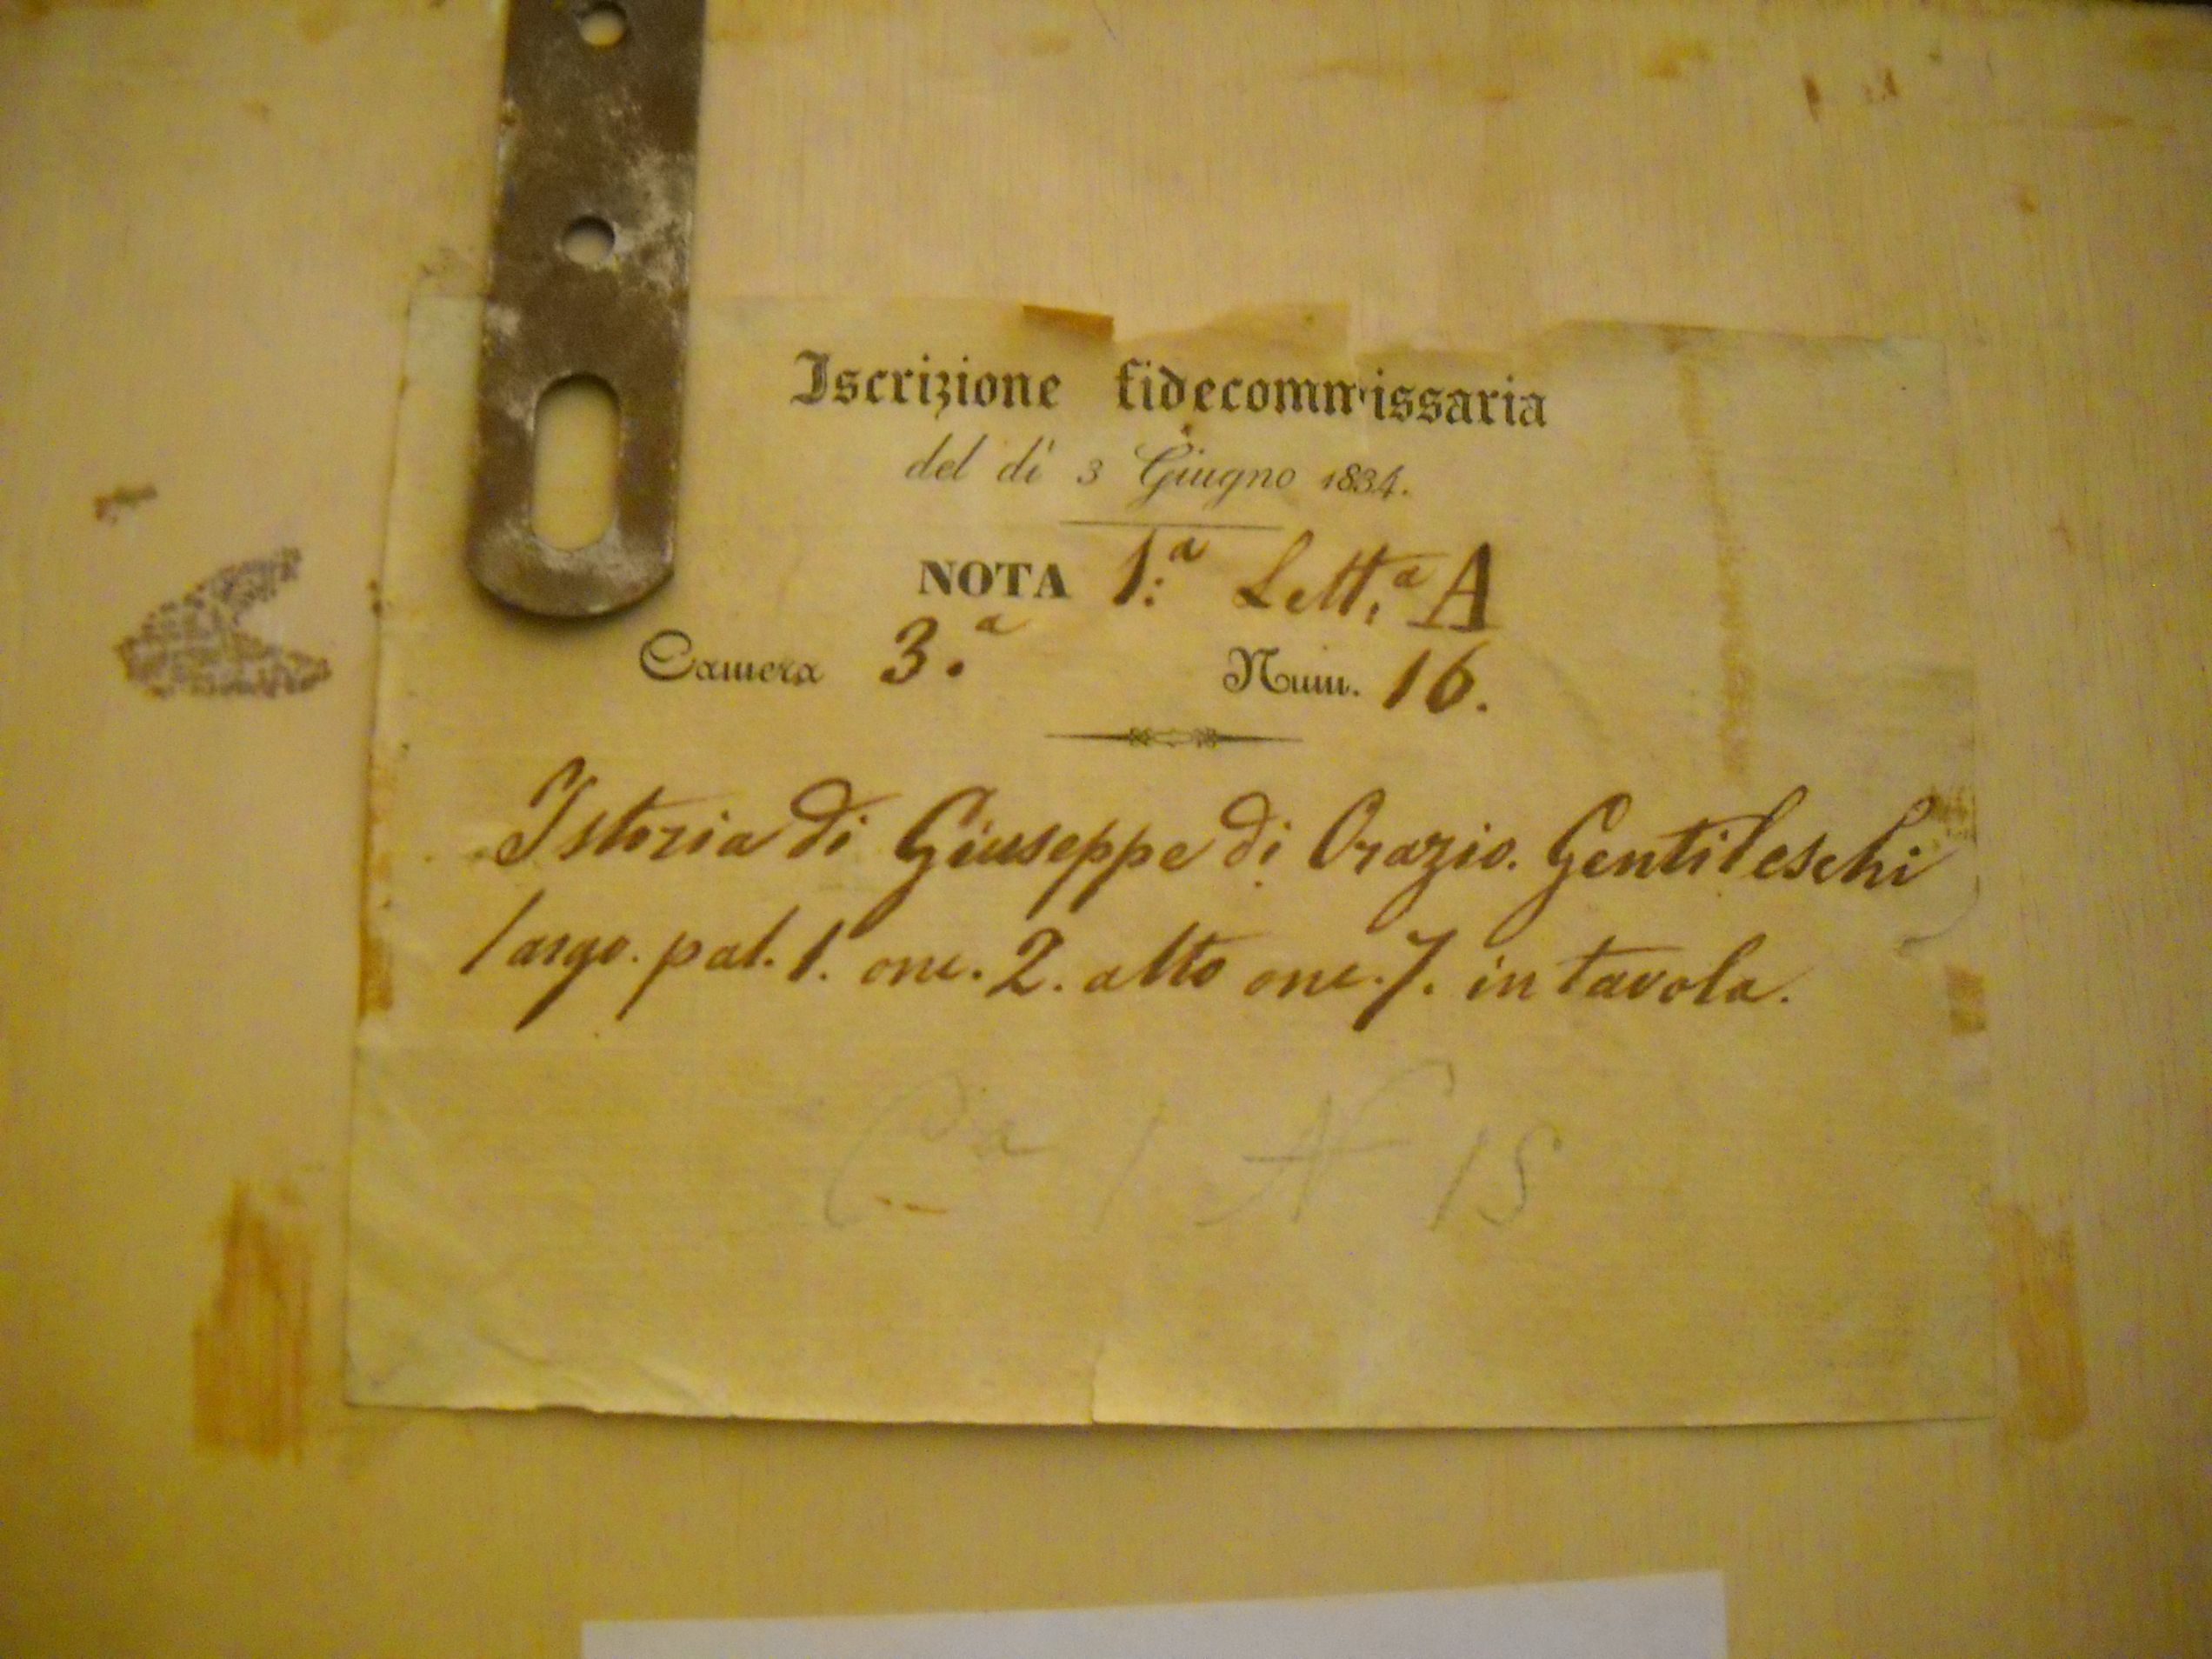 Iscrizione fidecommissaria
del dì 3 Giugno 1834.
NOTA 1:ª Lett.ª A
Camera 3.ª Num. 16.
Istoria di Giuseppe di Orazio. Gentileschi
largo. pal. 1. onc. 2. alto onc. 7. in tavola.
Cª 1 N 15